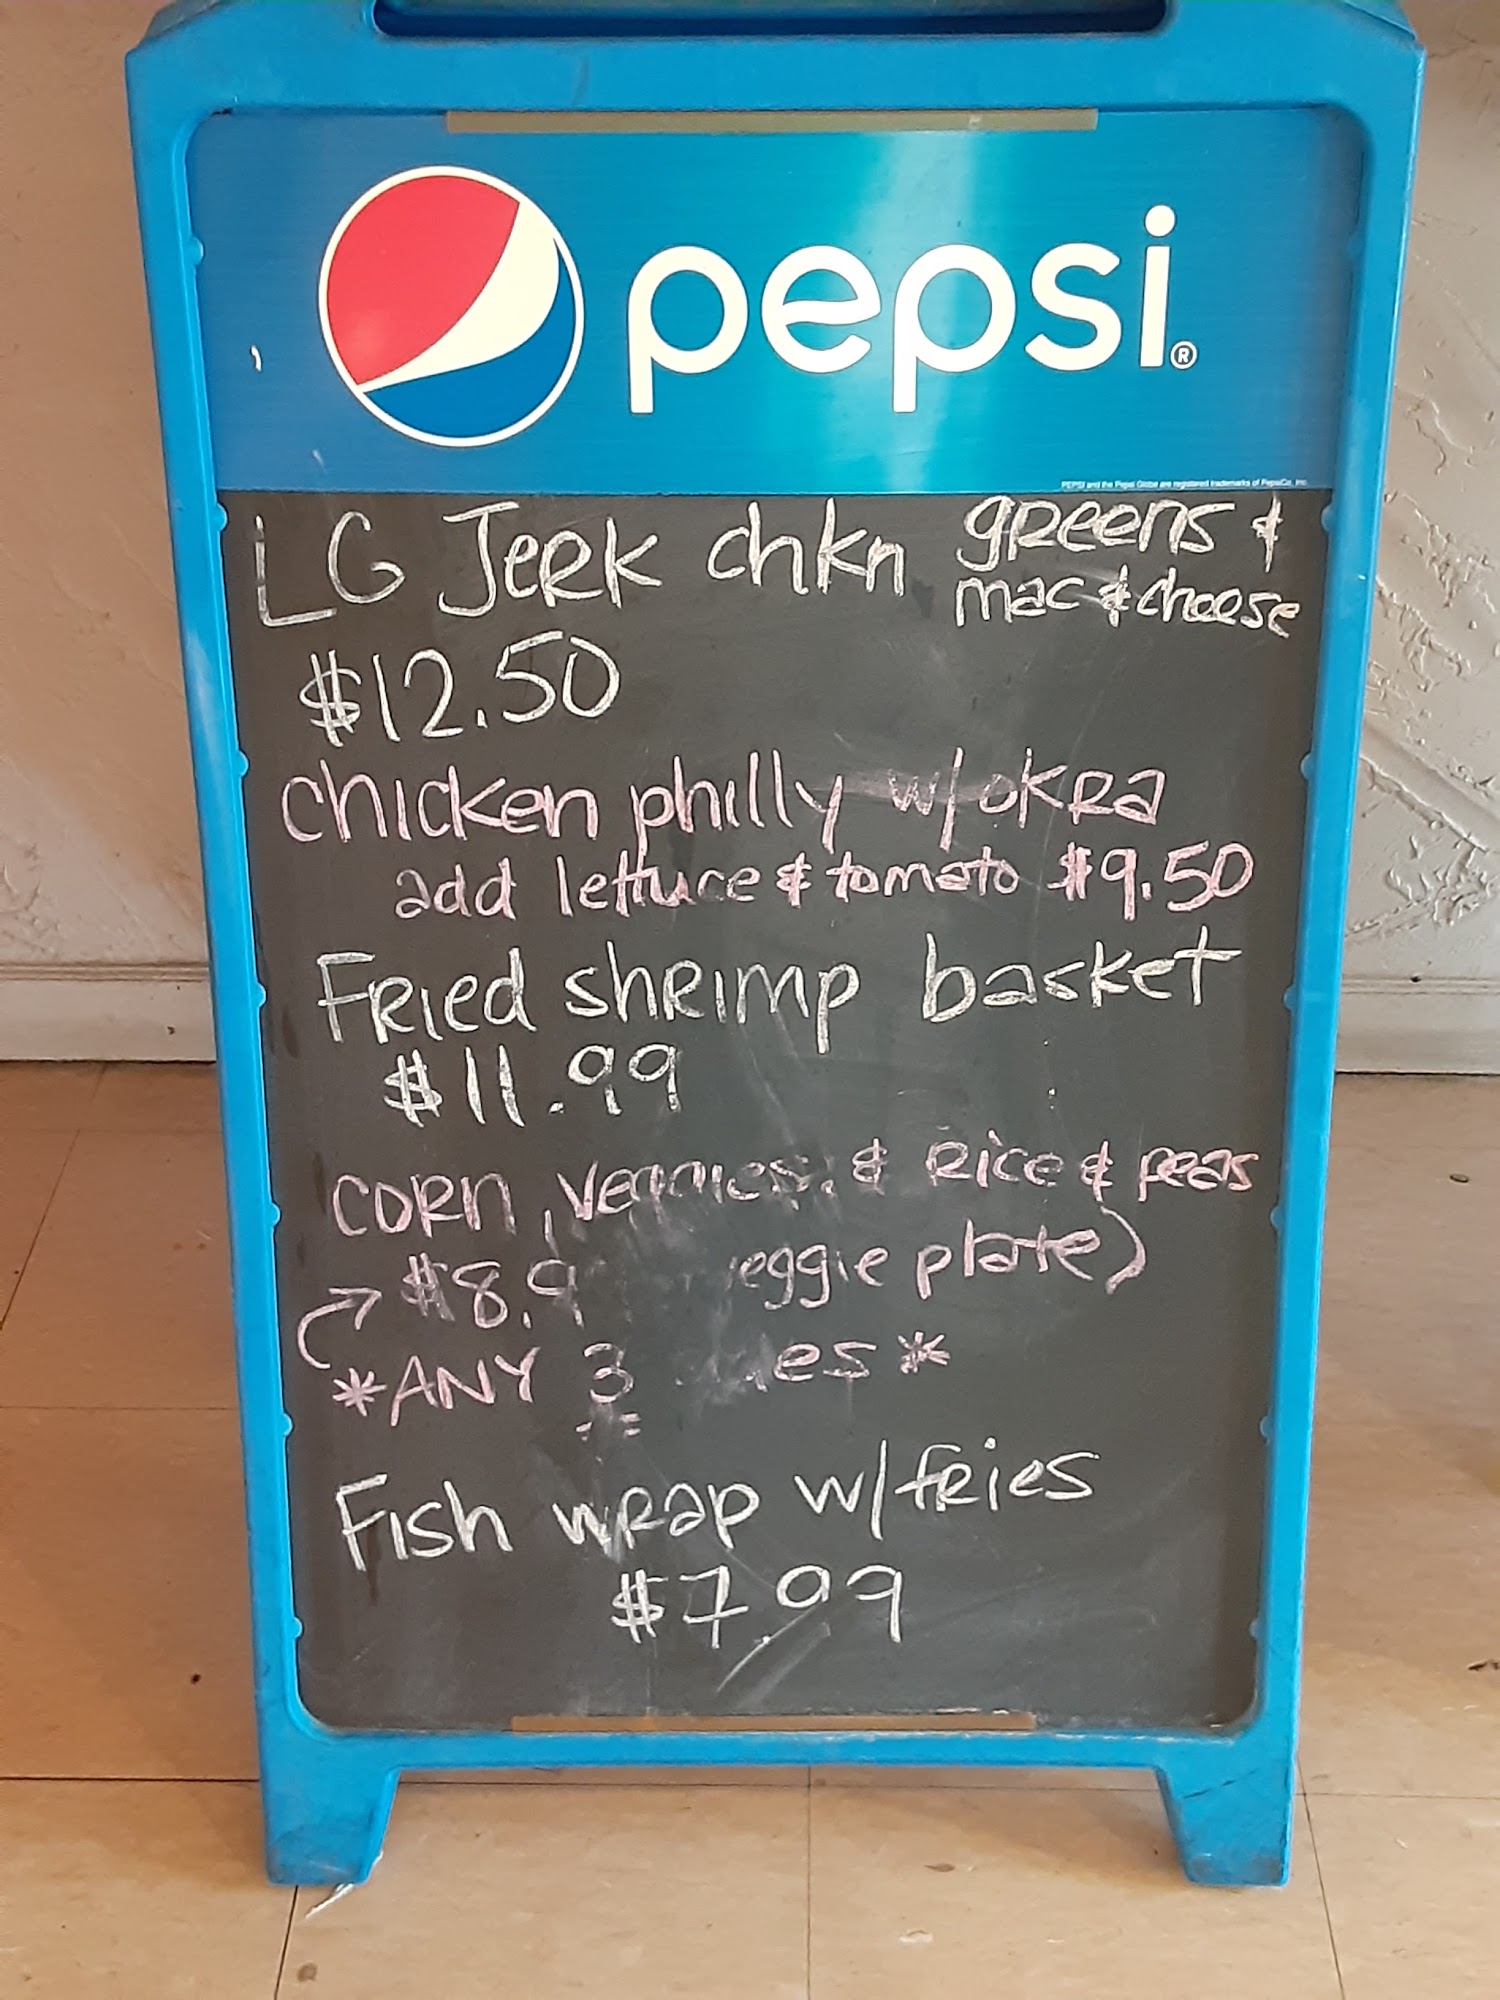 pepsi®
PEPSI and the Pepsi Globe are registered trademarks of PepsiCo, Inc.
LG Jerk chkn greens &
mac & cheese
$12.50
chicken philly w/okra
add lettuce & tomato $9.50
Fried shrimp basket
$11.99
corn, veggies, & Rice & peas
$8.9 eggie plate)
*ANY 3 es*
Fish wrap w/fries
$7.99